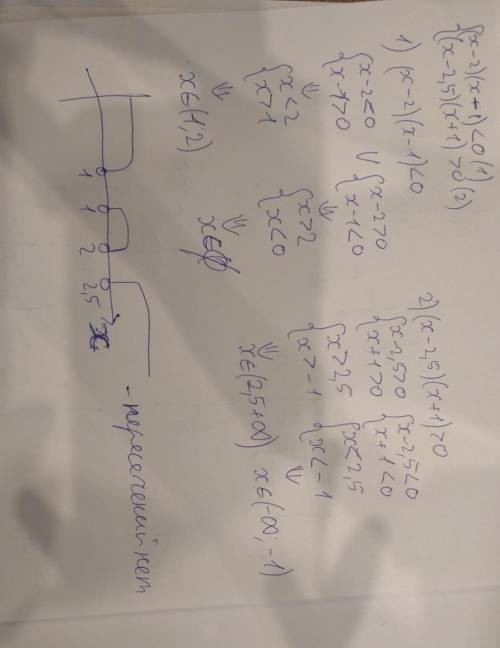 {(x-2)(x+1)<0 (1)
{(x-2,5)(x+1)>0 (2)
1) (x-2)(x-1)<0
{x-2<0 V {x-2>0
{x-1>0 {x-1<0
⇓ ⇓
{x<2 {x>2
{x>1 {x<0
⇓ ⇓
x∈(1;2) x∈∅
2)(x-2,5)(x+1)>0
{x-2,5>0 {x-2,5<0
{x+1>0 {x+1<0
{x>2,5 {x<2,5
{x>-1 {x<-1
⇓ ⇓
x∈(2,5+∞) x∈(-∞; -1)
1 1 2 2,5 x
- пересечений нет